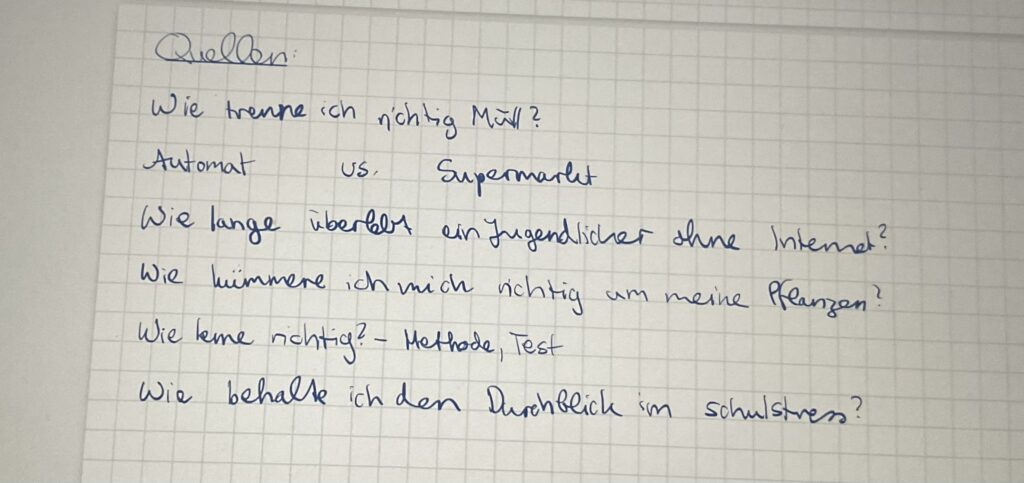 Quellen:
Wie trenne ich richtig Müll?
Automat vs. Supermarkt
Wie lange überlebt ein Jugendlicher ohne Internet?
Wie kümmere ich mich richtig um meine Pflanzen?
Wie lerne richtig? - Methode, Test
Wie behalte ich den Durchblick im Schulstress?